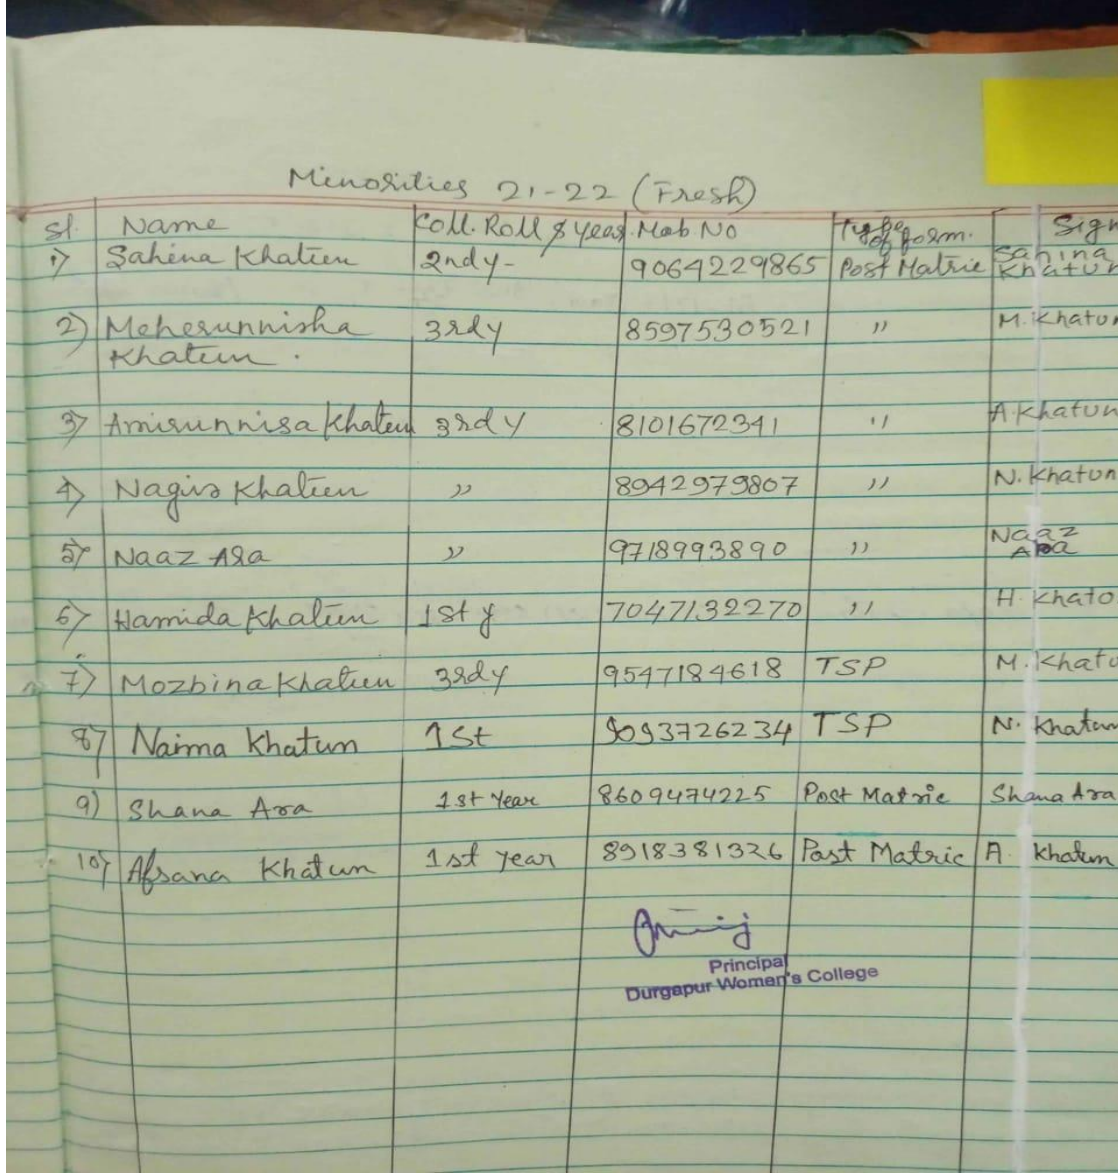 Minorities 21-22 (Fresh)
Sl. Name Coll. Roll & Year. Mob No Type of form. Sign
1) Sahina Khatun 2ndy- 9064229865 Post Matric Sahina Khatun
2) Meherunnisha Khatun. 3rdy 8597530521 " M. Khatun
3) Amirunnisa Khatun 3rdy 8101672341 " A. Khatun
4) Nagis Khatun " 8942979807 " N. Khatun
5) Naaz Ara " 9718993890 " Naaz Ara
6) Hamida Khatun 1st y 7047132270 " H. Khato
7) Mozbina Khatun 3rdy 9547184618 TSP M. Khatu
8) Naima Khatun 1st 9093726234 TSP N. Khatun
9) Shana Ara 1st Year 8609474225 Post Matric Shana Ara
10) Afsana Khatun 1st year 8918381326 Post Matric A. Khatun
Principal
Durgapur Women's College